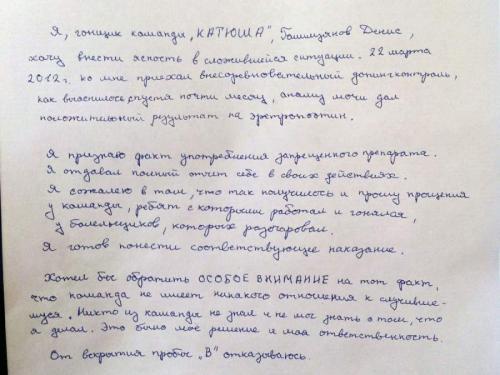 Я, гонщик команды „КАТЮША", Галимзянов Денис,
хочу внести ясность в сложившейся ситуации. 22 марта
2012 г. ко мне приехал внесоревновательный допингконтроль,
как выяснилось, спустя почти месяц, анализ мочи дал
положительный результат на эретропоэтин.
Я признаю факт употребления запрещенного препарата.
Я отдавал полный отчет себе в своих действиях.
Я сожалею в том, что так получилось и прошу прощения
у команды, ребят с которыми работал и гонялся,
у болельщиков, которых разочаровал.
Я готов понести соответствующее наказание.
Хотел бы обратить ОСОБОЕ ВНИМАНИЕ на тот факт,
что команда не имеет никакого отношения к случивше-
муся. Никто из команды не знал и не мог знать о том, что
я делал. Это было мое решение и моя ответственность.
От вскрытия пробы „В" отказываюсь.